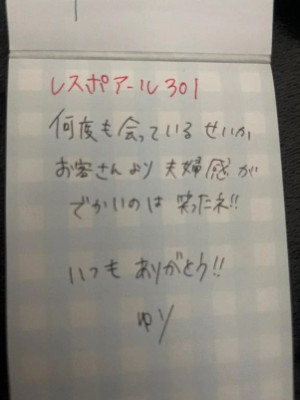 レスポアール301
何度も会っているせいか
お客さんより夫婦感が
でかいのは笑ったネ!!
いつもありがとう!!
ゆり